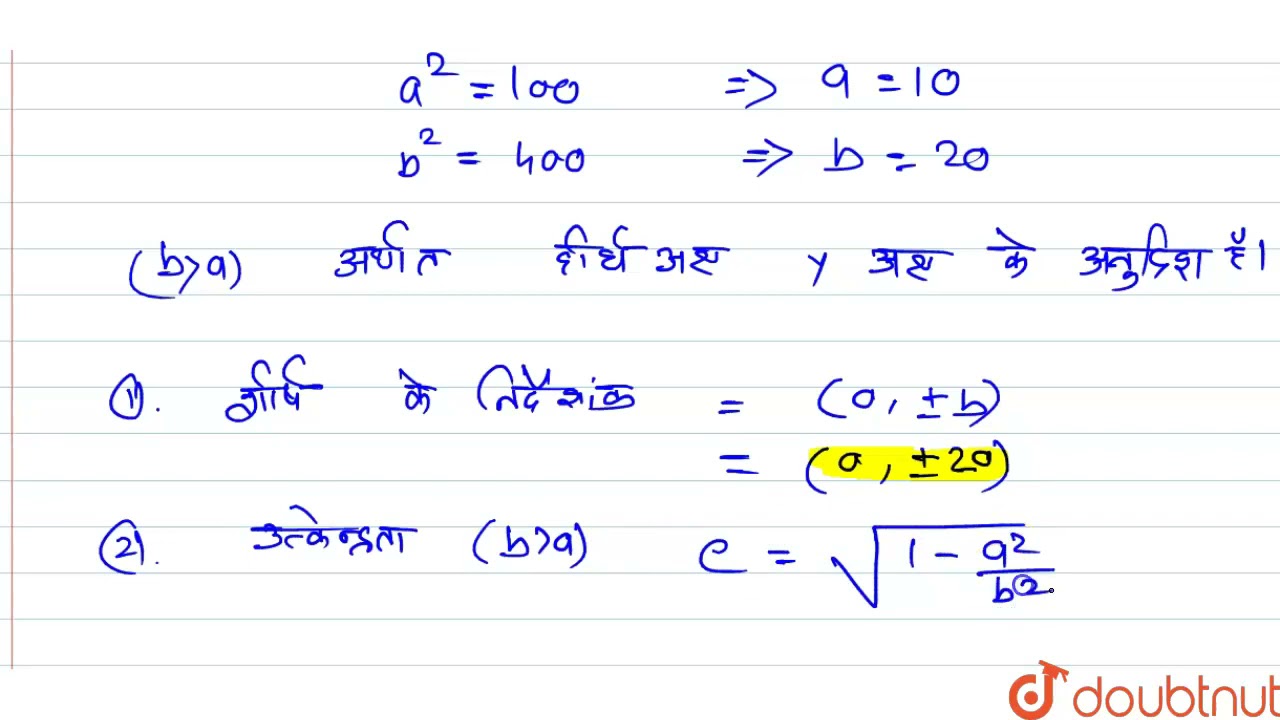 a² = 100 => a = 10
b² = 400 => b = 20
(b>a) अर्थात दीर्घ अक्ष y अक्ष के अनुदिश है।
(1). शीर्ष के निर्देशांक = (0, ±b)
= (0, ±20)
(2). उत्केन्द्रता (b>a) e = √(1 - a²/b²)
doubtnut